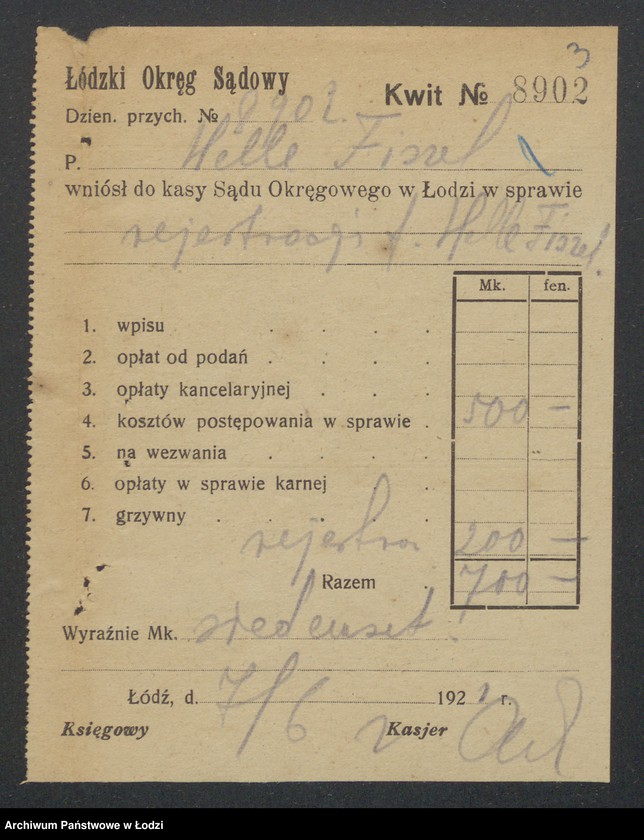 3
Łódzki Okręg Sądowy
Kwit № 8902
Dzien. przych. № 8902.
P. Helle Fiszel
wniósł do kasy Sądu Okręgowego w Łodzi w sprawie
rejestracji f. Helle Fiszel
Mk. fen.
1. wpisu . . . .
2. opłat od podań . . . .
3. opłaty kancelaryjnej . . .
4. kosztów postępowania w sprawie . 500 —
5. na wezwania . . . .
6. opłaty w sprawie karnej . .
7. grzywny . . . . .
rejestra 200 —
Razem . 700 —
Wyraźnie Mk. siedemset!
Łódź, d. 7/6 1921 r.
Księgowy Kasjer
Archiwum Państwowe w Łodzi